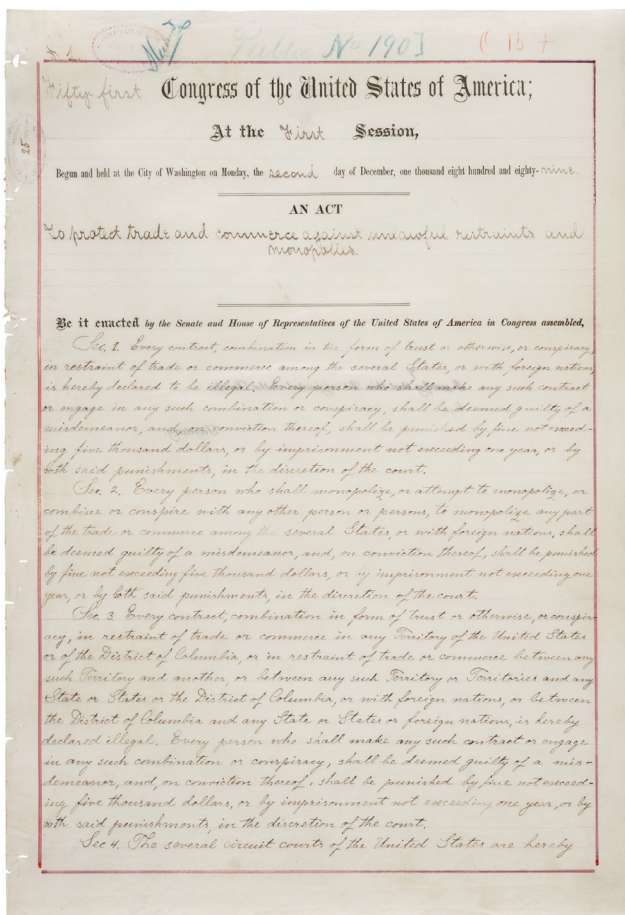 Public No 190]
Fifty-first Congress of the United States of America;
At the First Session,
Begun and held at the City of Washington on Monday, the second day of December, one thousand eight hundred and eighty-nine.
AN ACT
To protect trade and commerce against unlawful restraints and
monopolies.
Be it enacted by the Senate and House of Representatives of the United States of America in Congress assembled,
Sec. 1. Every contract, combination in the form of trust or otherwise, or conspiracy,
in restraint of trade or commerce among the several States, or with foreign nations,
is hereby declared to be illegal. Every person who shall make any such contract
or engage in any such combination or conspiracy, shall be deemed guilty of a
misdemeanor, and, on conviction thereof, shall be punished by fine not exceed-
ing five thousand dollars, or by imprisonment not exceeding one year, or by
both said punishments, in the discretion of the court.
Sec. 2. Every person who shall monopolize, or attempt to monopolize, or
combine or conspire with any other person or persons, to monopolize any part
of the trade or commerce among the several States, or with foreign nations, shall
be deemed guilty of a misdemeanor, and, on conviction thereof, shall be punished
by fine not exceeding five thousand dollars, or by imprisonment not exceeding one
year, or by both said punishments, in the discretion of the court.
Sec. 3. Every contract, combination in form of trust or otherwise, or conspir-
acy, in restraint of trade or commerce in any Territory of the United States
or of the District of Columbia, or in restraint of trade or commerce between any
such Territory and another, or between any such Territory or Territories and any
State or States or the District of Columbia, or with foreign nations, or between
the District of Columbia and any State or States or foreign nations, is hereby
declared illegal. Every person who shall make any such contract or engage
in any such combination or conspiracy, shall be deemed guilty of a mis-
demeanor, and, on conviction thereof, shall be punished by fine not exceed-
ing five thousand dollars, or by imprisonment not exceeding one year, or by
both said punishments, in the discretion of the court.
Sec 4. The several circuit courts of the United States are hereby
25